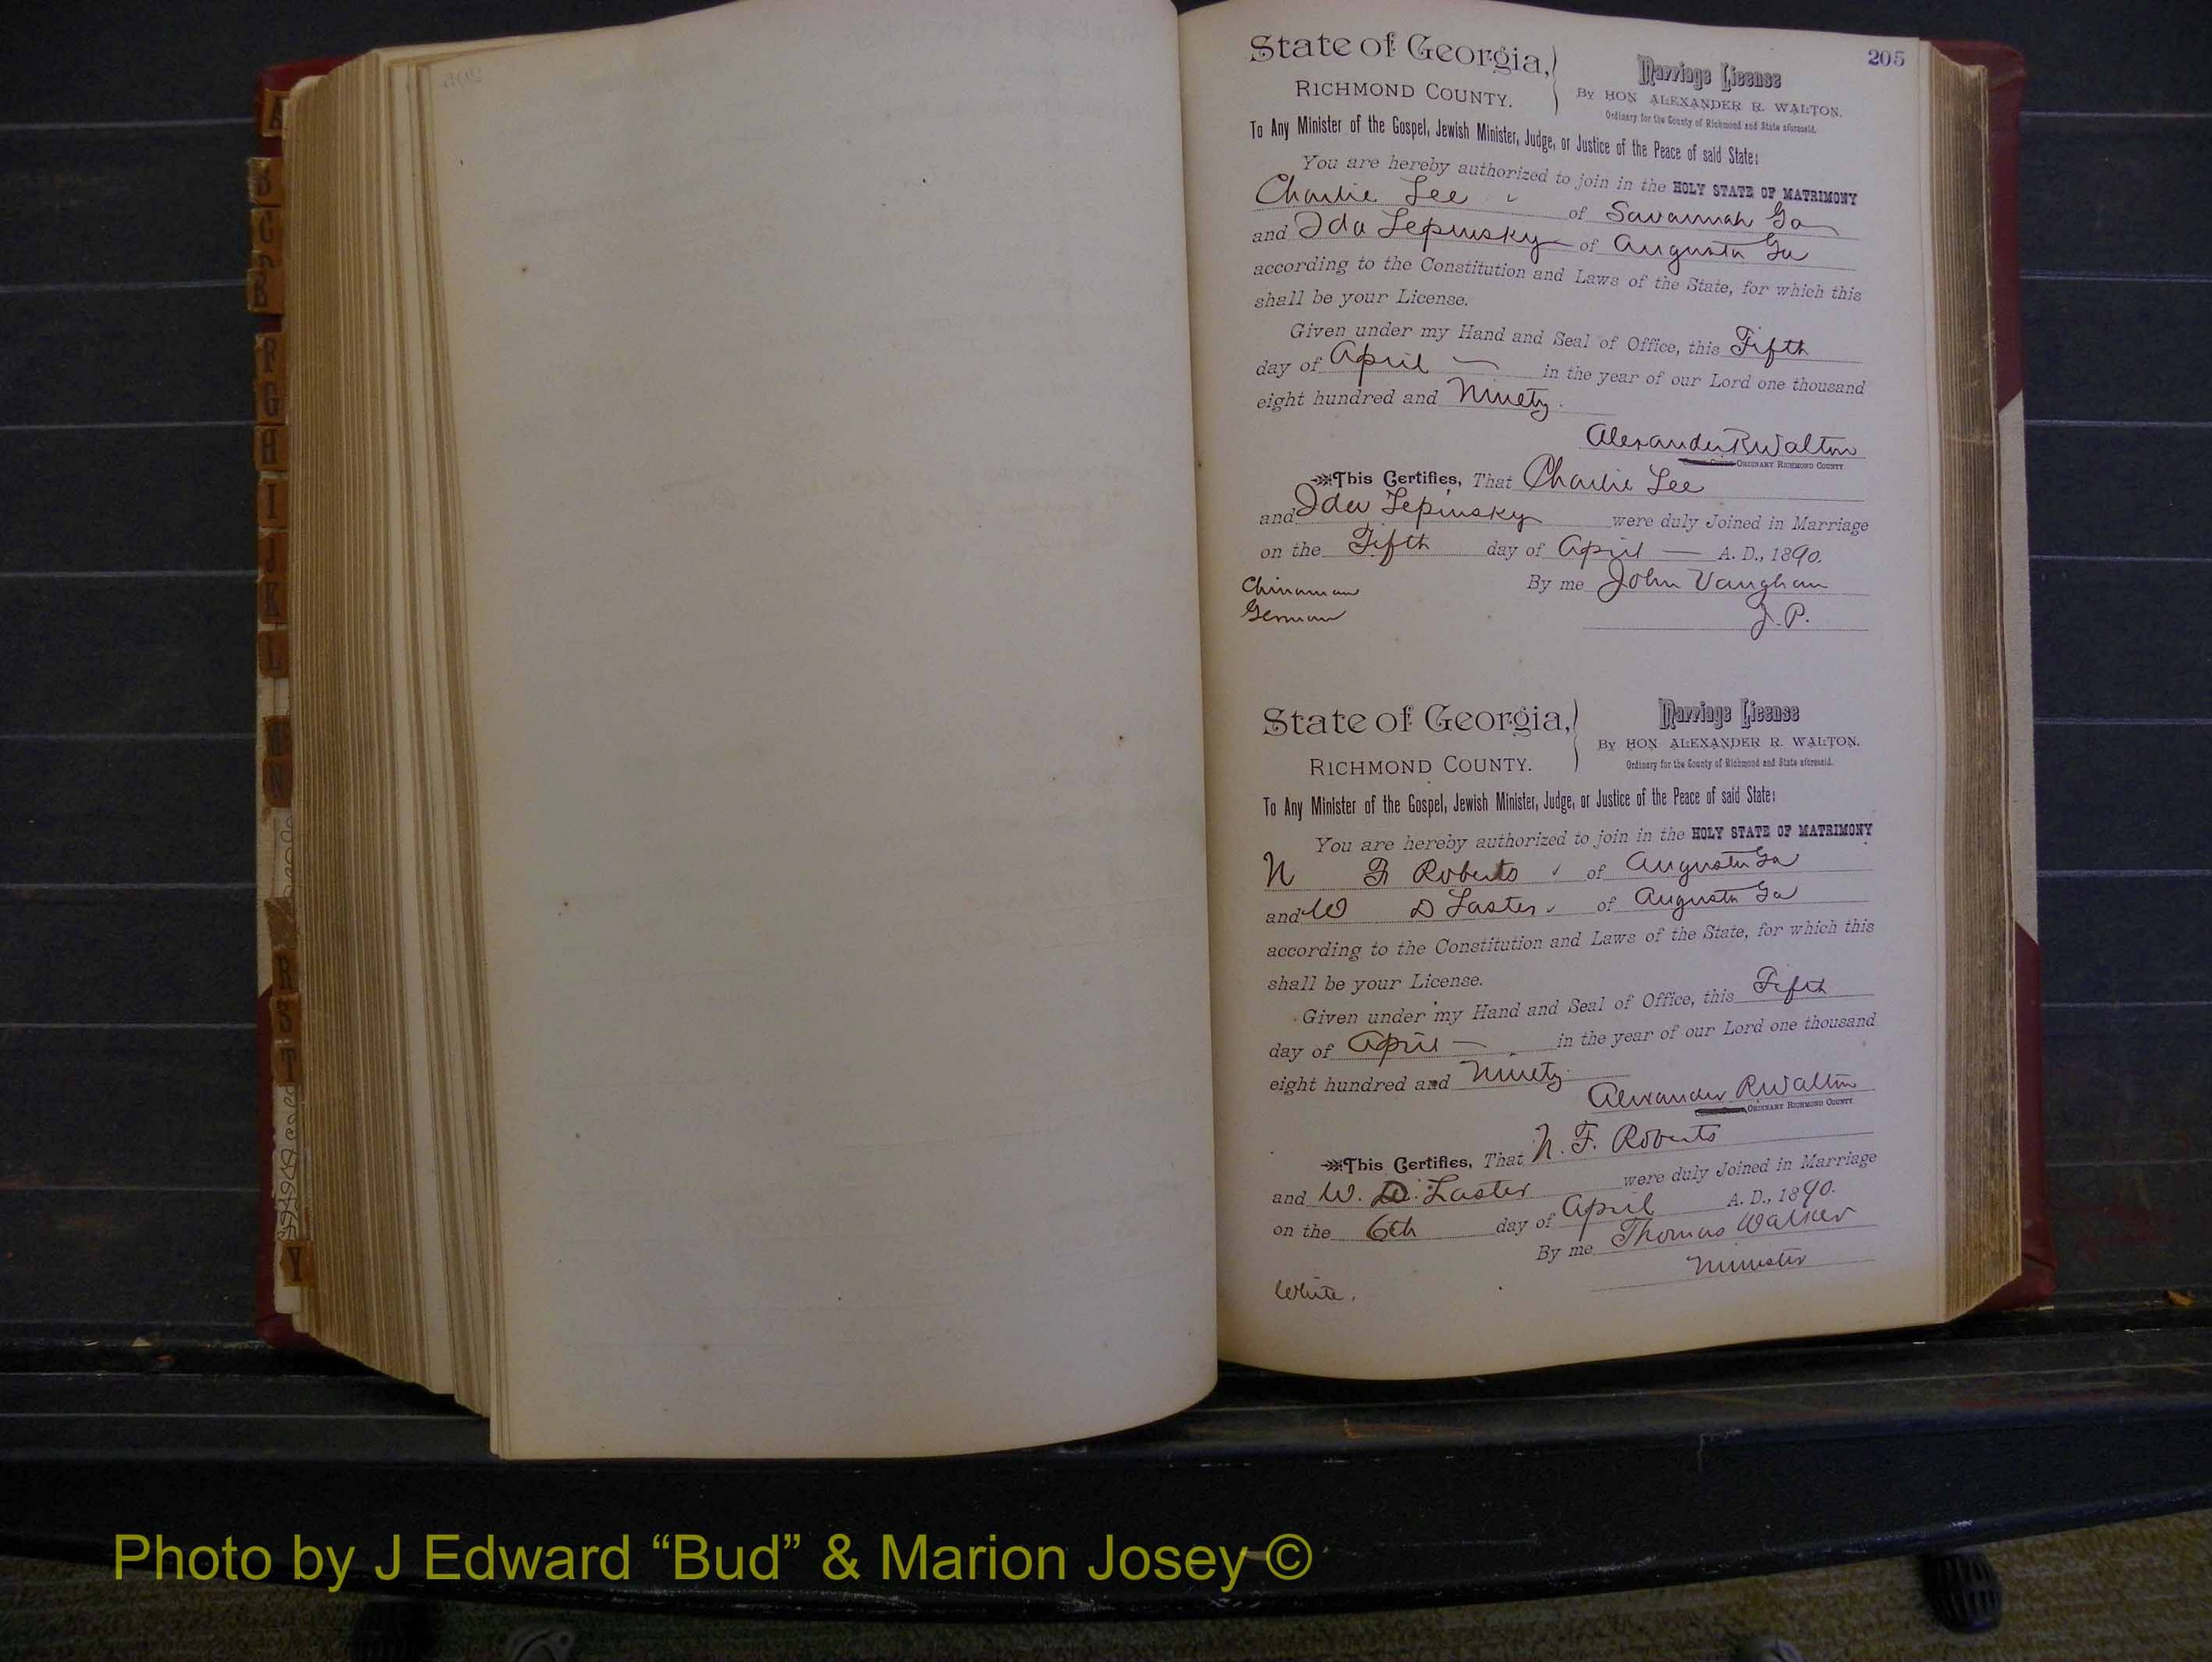 205
State of Georgia,
RICHMOND COUNTY.
Marriage License
By HON ALEXANDER R. WALTON.
Ordinary for the County of Richmond and State aforesaid.
To Any Minister of the Gospel, Jewish Minister, Judge, or Justice of the Peace of said State:
You are hereby authorized to join in the HOLY STATE OF MATRIMONY
Charlie Lee of Savannah Ga
and Ida Lepinsky of Augusta Ga
according to the Constitution and Laws of the State, for which this
shall be your License.
Given under my Hand and Seal of Office, this Fifth
day of April in the year of our Lord one thousand
eight hundred and Ninety.
Alexander R Walton
ORDINARY RICHMOND COUNTY
This Certifies, That Charlie Lee
and Ida Lepinsky were duly Joined in Marriage
on the Fifth day of April A. D., 1890.
Chinaman
German
By me John Vaughan
J. P.
State of Georgia,
RICHMOND COUNTY.
Marriage License
By HON ALEXANDER R. WALTON.
Ordinary for the County of Richmond and State aforesaid.
To Any Minister of the Gospel, Jewish Minister, Judge, or Justice of the Peace of said State:
You are hereby authorized to join in the HOLY STATE OF MATRIMONY
N F Roberts of Augusta Ga
and W D Laster of Augusta Ga
according to the Constitution and Laws of the State, for which this
shall be your License.
Given under my Hand and Seal of Office, this Fifth
day of April in the year of our Lord one thousand
eight hundred and Ninety
Alexander R Walton
ORDINARY RICHMOND COUNTY
This Certifies, That N. F. Roberts
and W. D. Laster were duly Joined in Marriage
on the 6th day of April A. D., 1890.
By me Thomas Walker
Minister
White.
B
G
F
G
H
I
J
K
L
N
R
S
T
Y
Photo by J Edward “Bud” & Marion Josey ©